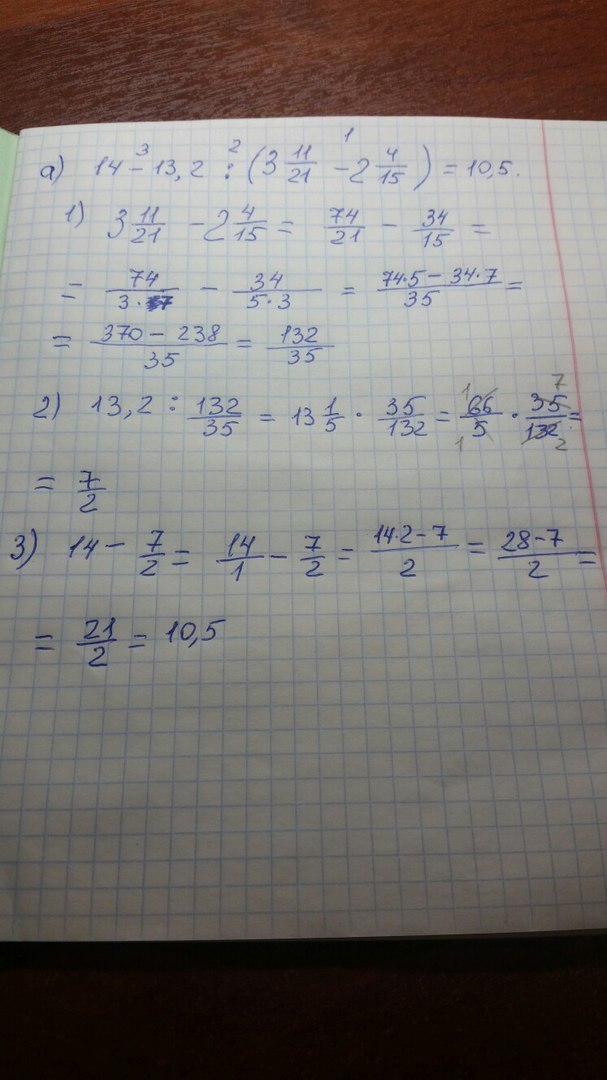 а) 14 - 13,2 : (3 11/21 - 2 4/15) = 10,5.
1) 3 11/21 - 2 4/15 = 74/21 - 34/15 =
= 74/3·7 - 34/5·3 = 74·5 - 34·7/35 =
= 370 - 238/35 = 132/35
2) 13,2 : 132/35 = 13 1/5 · 35/132 = 66/5 · 35/132 =
= 7/2
3) 14 - 7/2 = 14/1 - 7/2 = 14·2 - 7/2 = 28 - 7/2 =
= 21/2 = 10,5